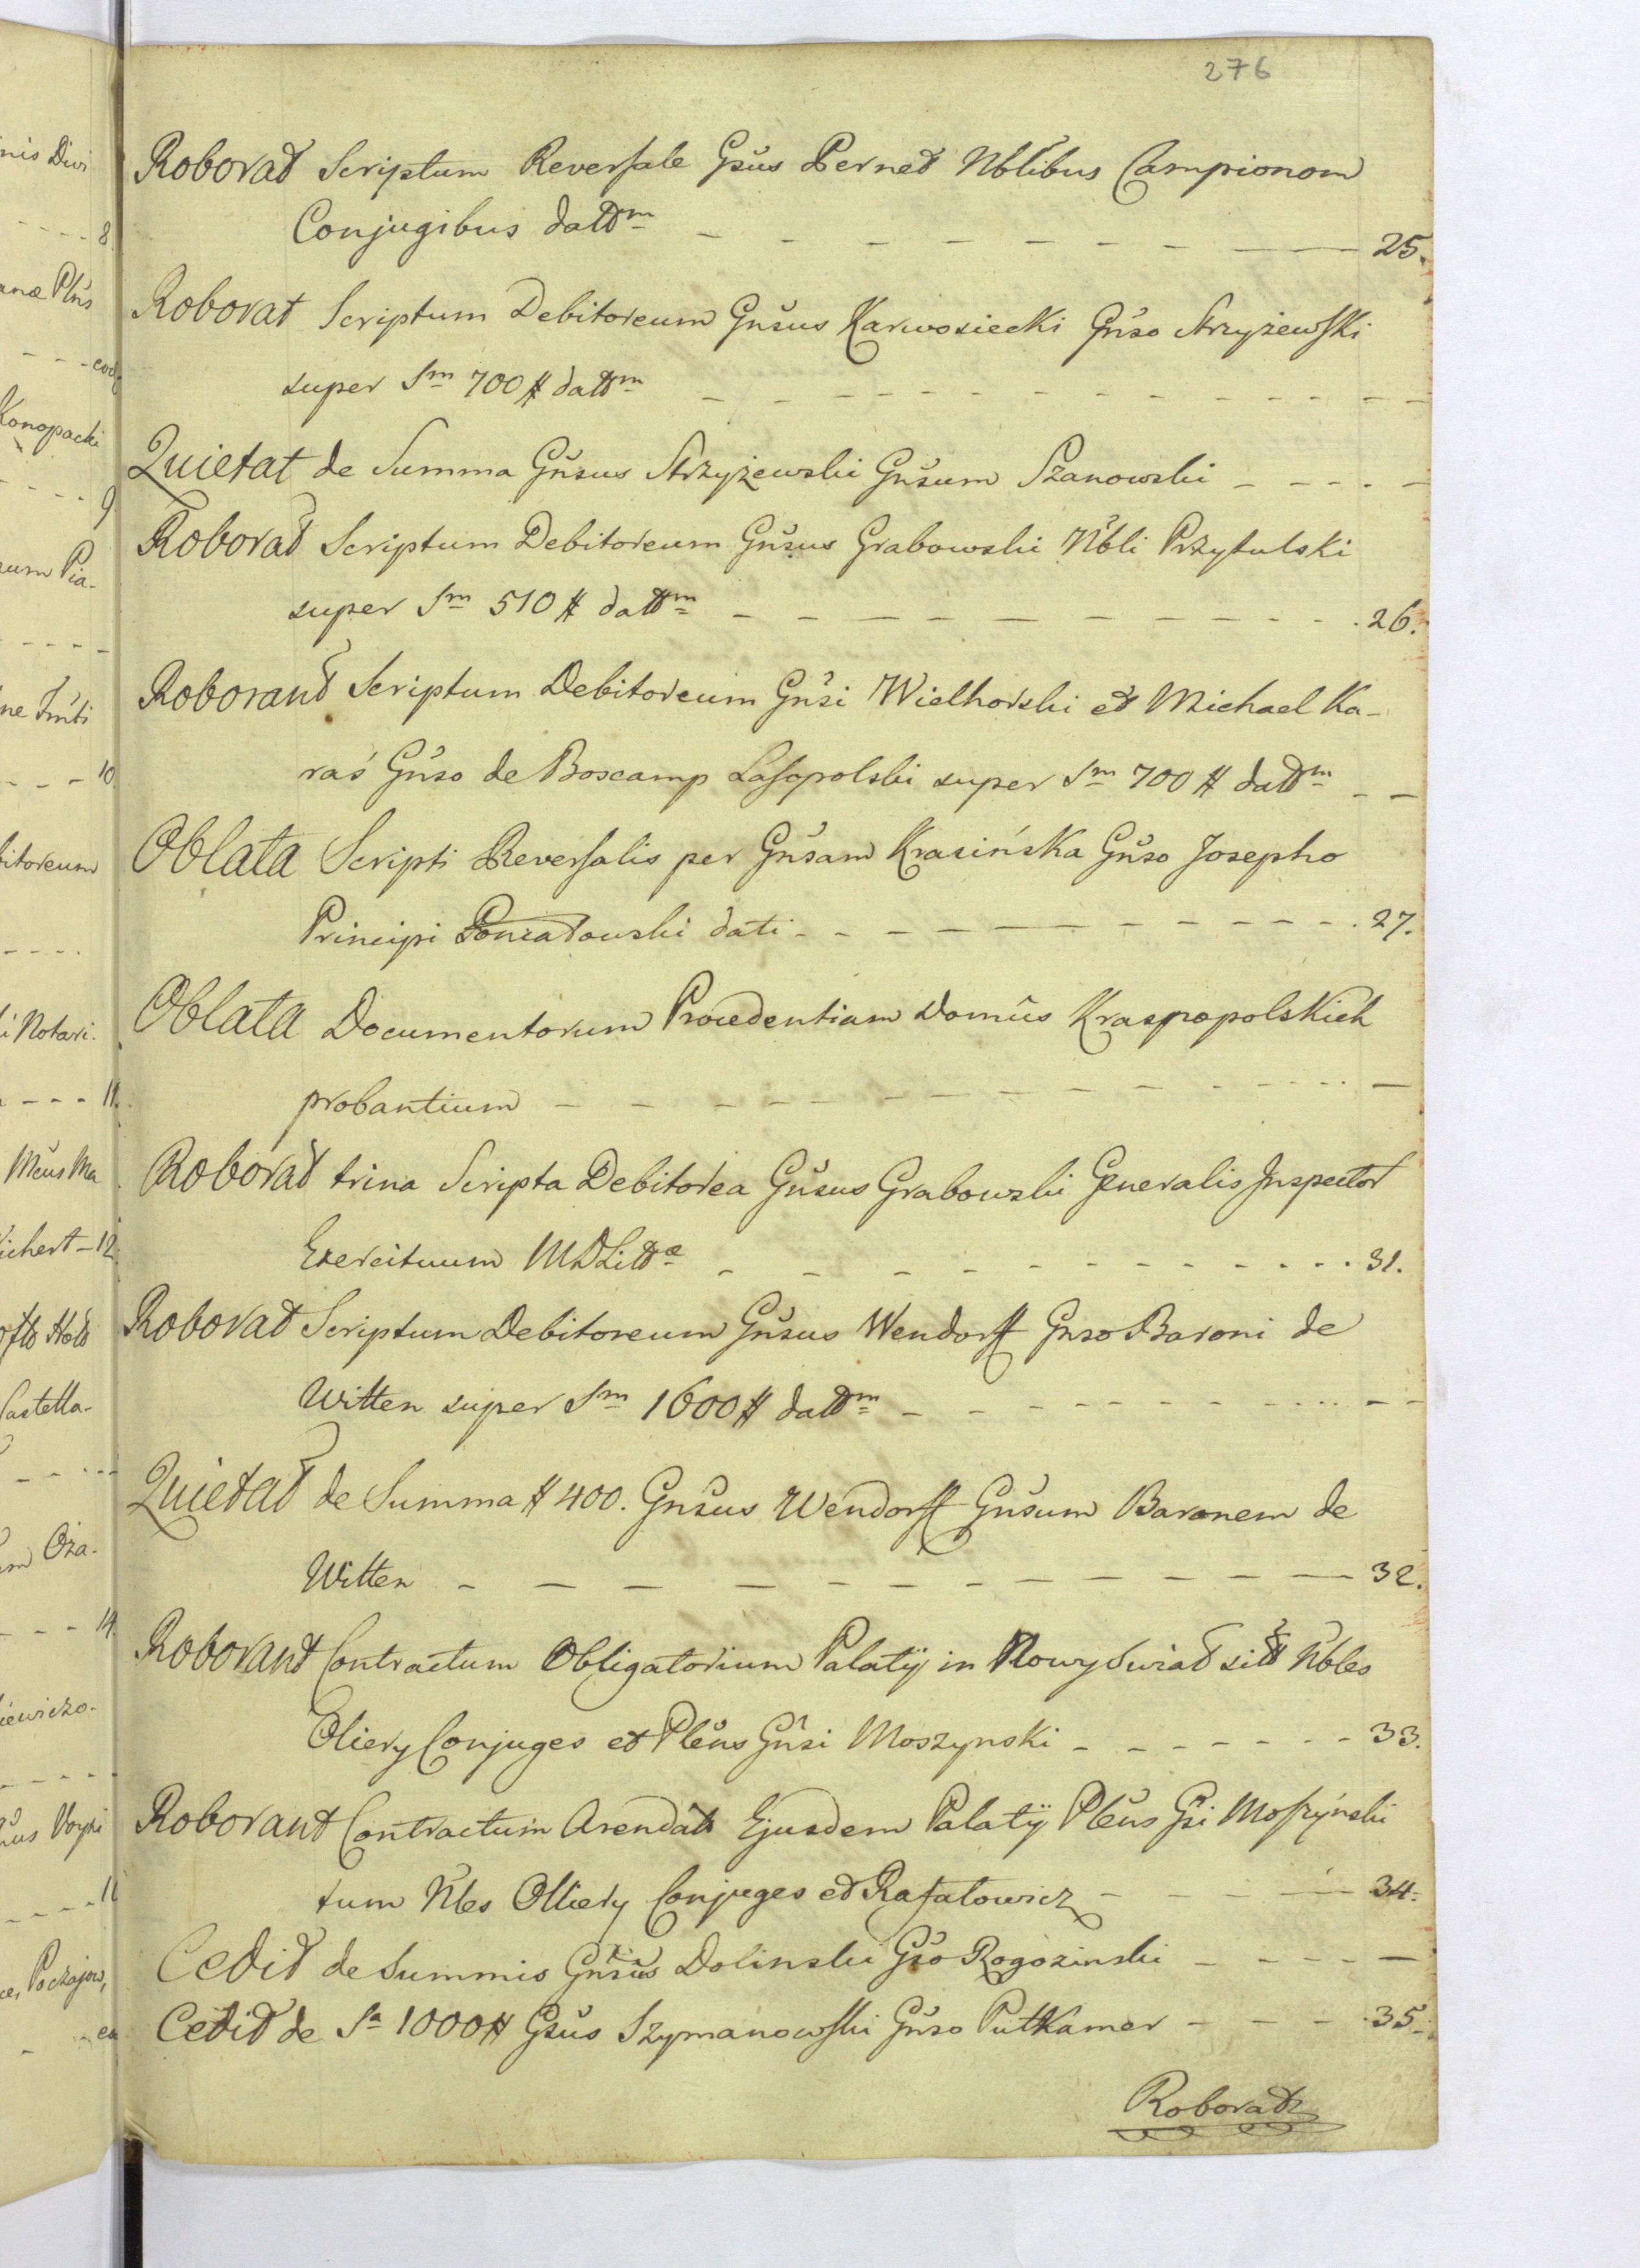 276
Roborat Scriptum Reversale Gsus Pernet Nblibus Campionom
Conjugibus datt͞m - - - - - - - - 25.
Roborat Scriptum Debitoreum Gnsus Karwosiecki Gnso Strzyżewski
super Sm 700 # dattm - - - - - - - -
Quietat de Summa Gnsus Strzyżewski Gnsum Szanowski - - - - -
Roborat Scriptum Debitoreum Gnsus Grabowski Nbli Przytulski
super Sm 510 # dattm - - - - - - - - 26.
Roborant Scriptum Debitoreum Gnsi Wielhorski et Michael Ka-
raś Gnso de Boscamp Lasopolski super Sm 700 # dattm - -
Oblata Scripti Reversalis per Gnsam Krasińska Gnso Josepho
Principi Poniatowski dati - - - - - - - - 27.
Oblata Documentorum Procedentiam Domûs Kraspopolskich
probantium - - - - - - - -
Roborat trina Scripta Debitorea Gnsus Grabowski Generalis Inspector
Exercituum MDLittæ - - - - - - - - 31.
Roborat Scriptum Debitoreum Gnsus Wendorff Gnso Baroni de
Witten super Sm 1600 # dattm - - - - - - - -
Quietat de Summa # 400. Gnsus Wendorff Gnsum Baronem de
Witten - - - - - - - - 32.
Roborant Contractum Obligatorium Palatij in Nowy Swiat sitt Nbles
Oliery Conjuges et Plens Gnsi Moszynski - - - - - - - 33.
Roborant Contractum Arendat Ejusdem Palatij Plens Gsi Moszyński
tum Nles Olliery Conjuges et Rafalowicz - - - - 34.
Cedit de Summis Gnsus Dolinski Gso Rogozinski - - - - -
Cedit de Sa 1000 # Gsus Szymanowski Gnso Putkamer - - - 35.
Roborat